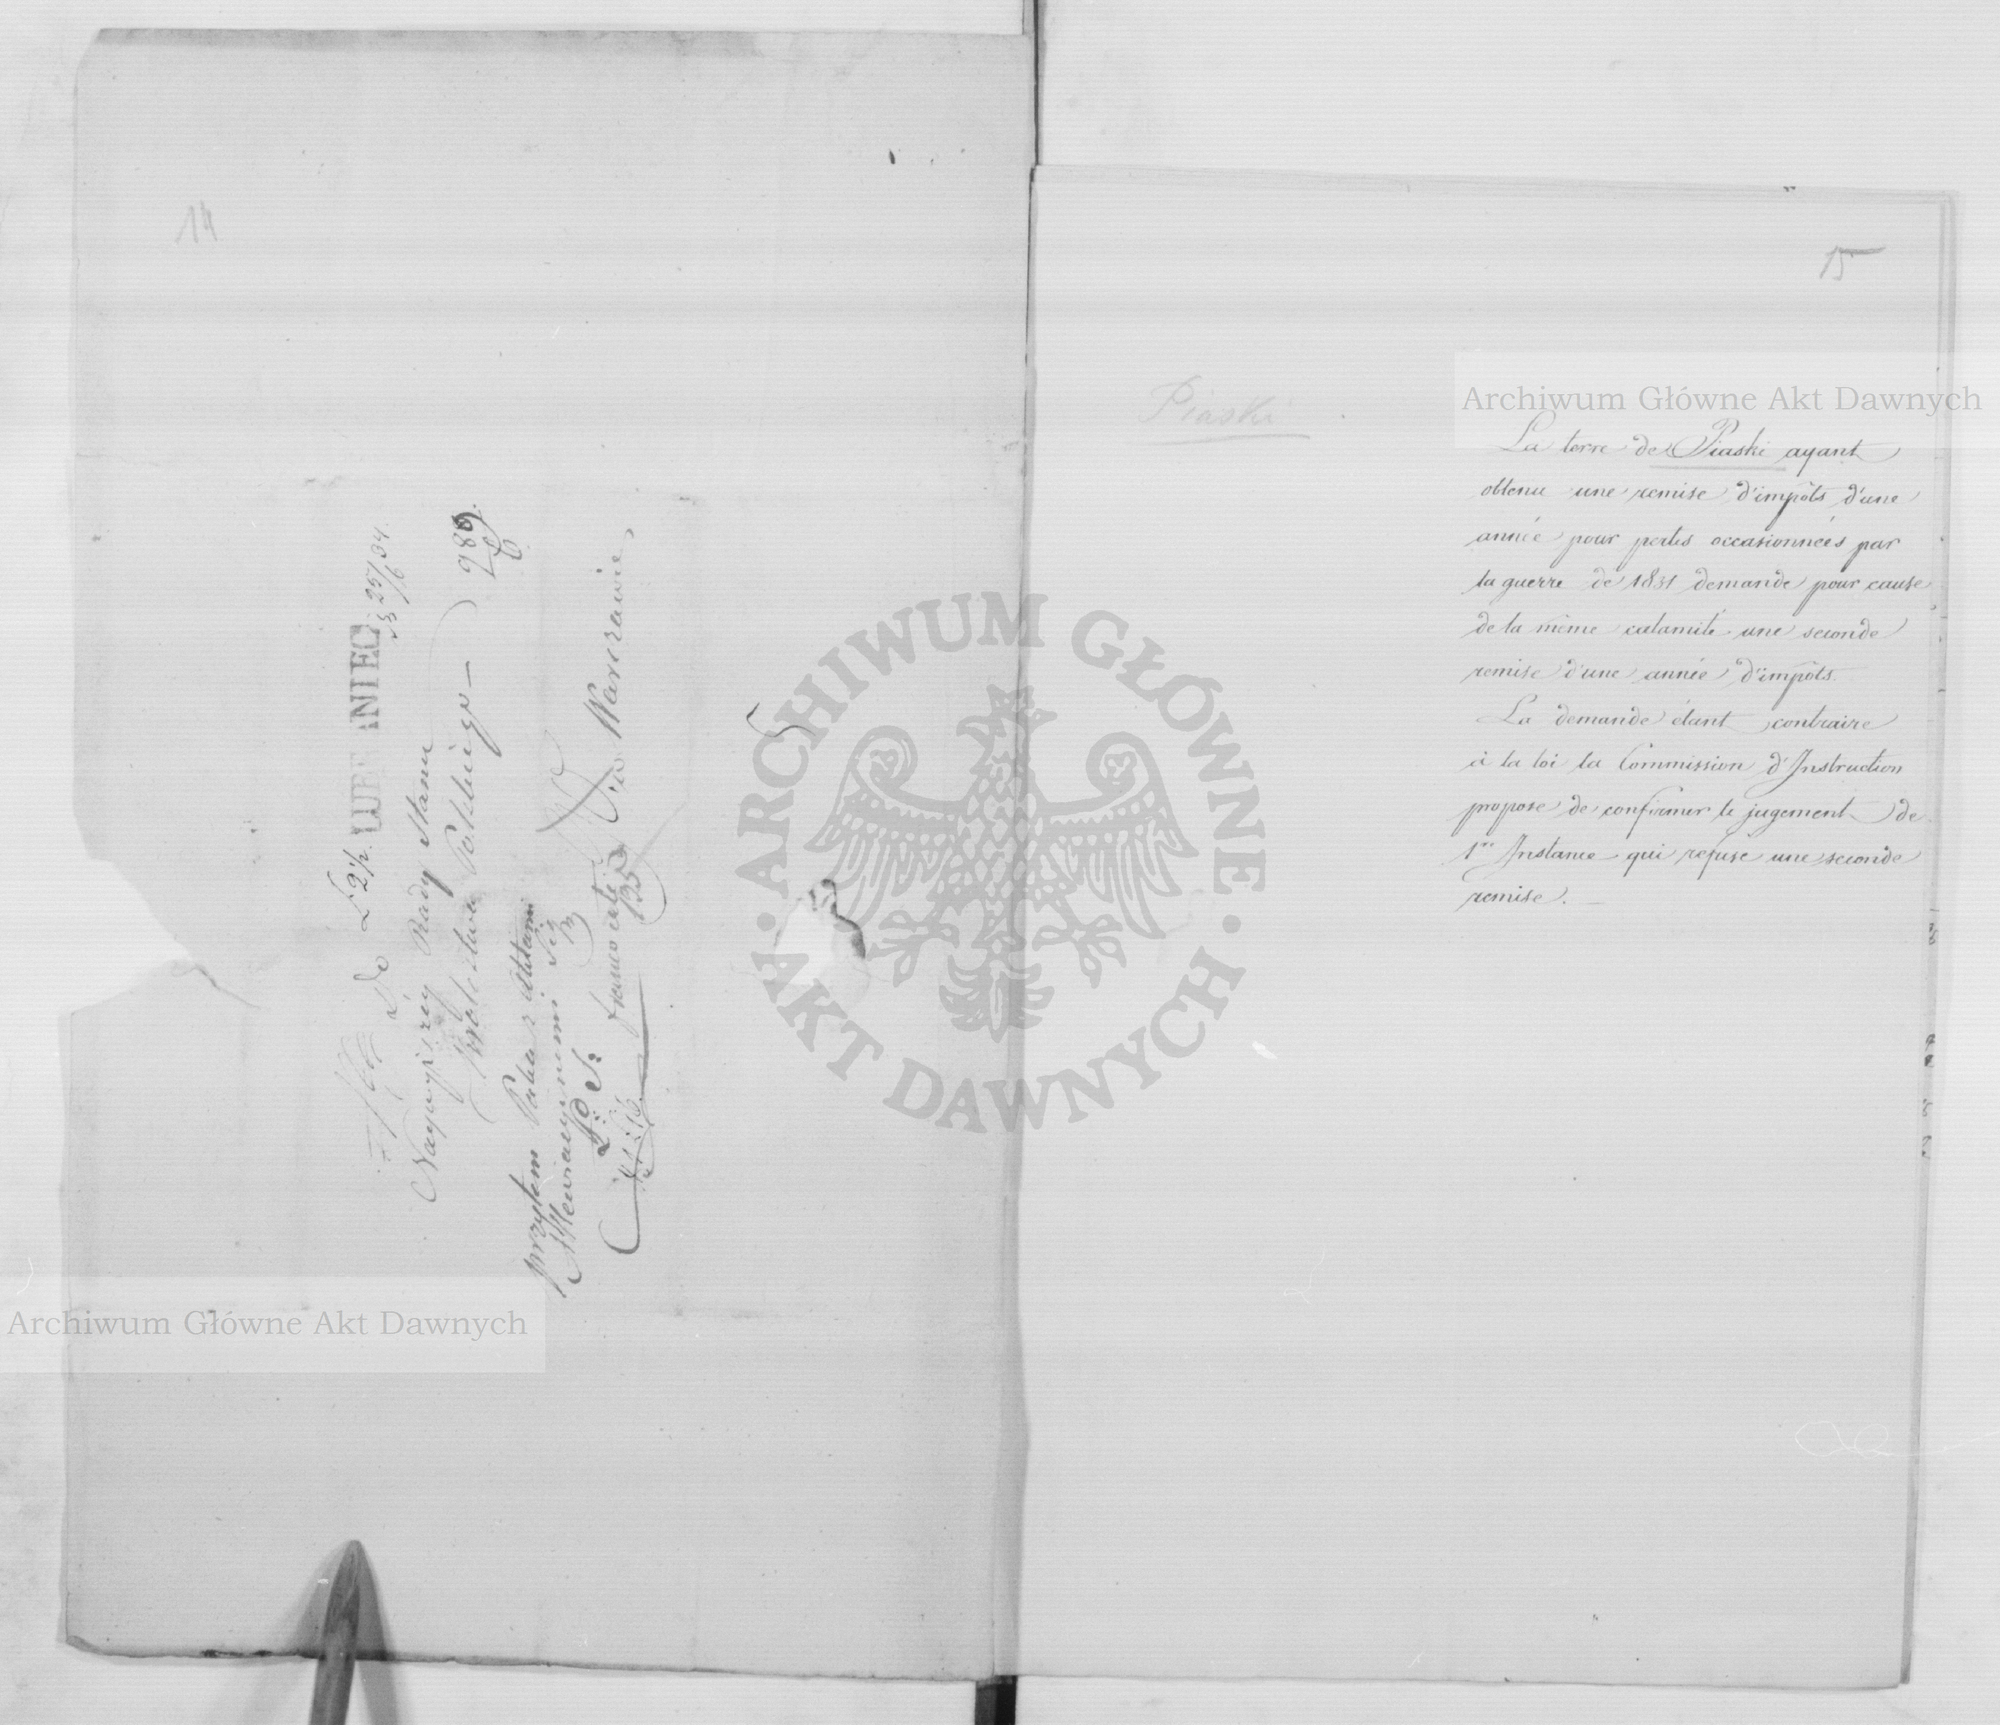 14
Do
LUB ANIEC
25/6 34
Naywyższéy Rady Stanu
Królestwa Polskiego
989
przytem Paka z Aktami
w Warszawie
15
Piaski
La terre de Piaski ayant
obtenu une remise d'impôts d'une
année pour pertes occasionnées par
la guerre de 1831 demande pour cause
de la même calamité une seconde
remise d'une année d'impôts.
La demande étant contraire
à la loi la Commission d'Instruction
propose de confirmer le jugement de
1re Instance qui refuse une seconde
remise. —
Archiwum Główne Akt Dawnych
Archiwum Główne Akt Dawnych
ARCHIWUM GŁÓWNE
AKT DAWNYCH